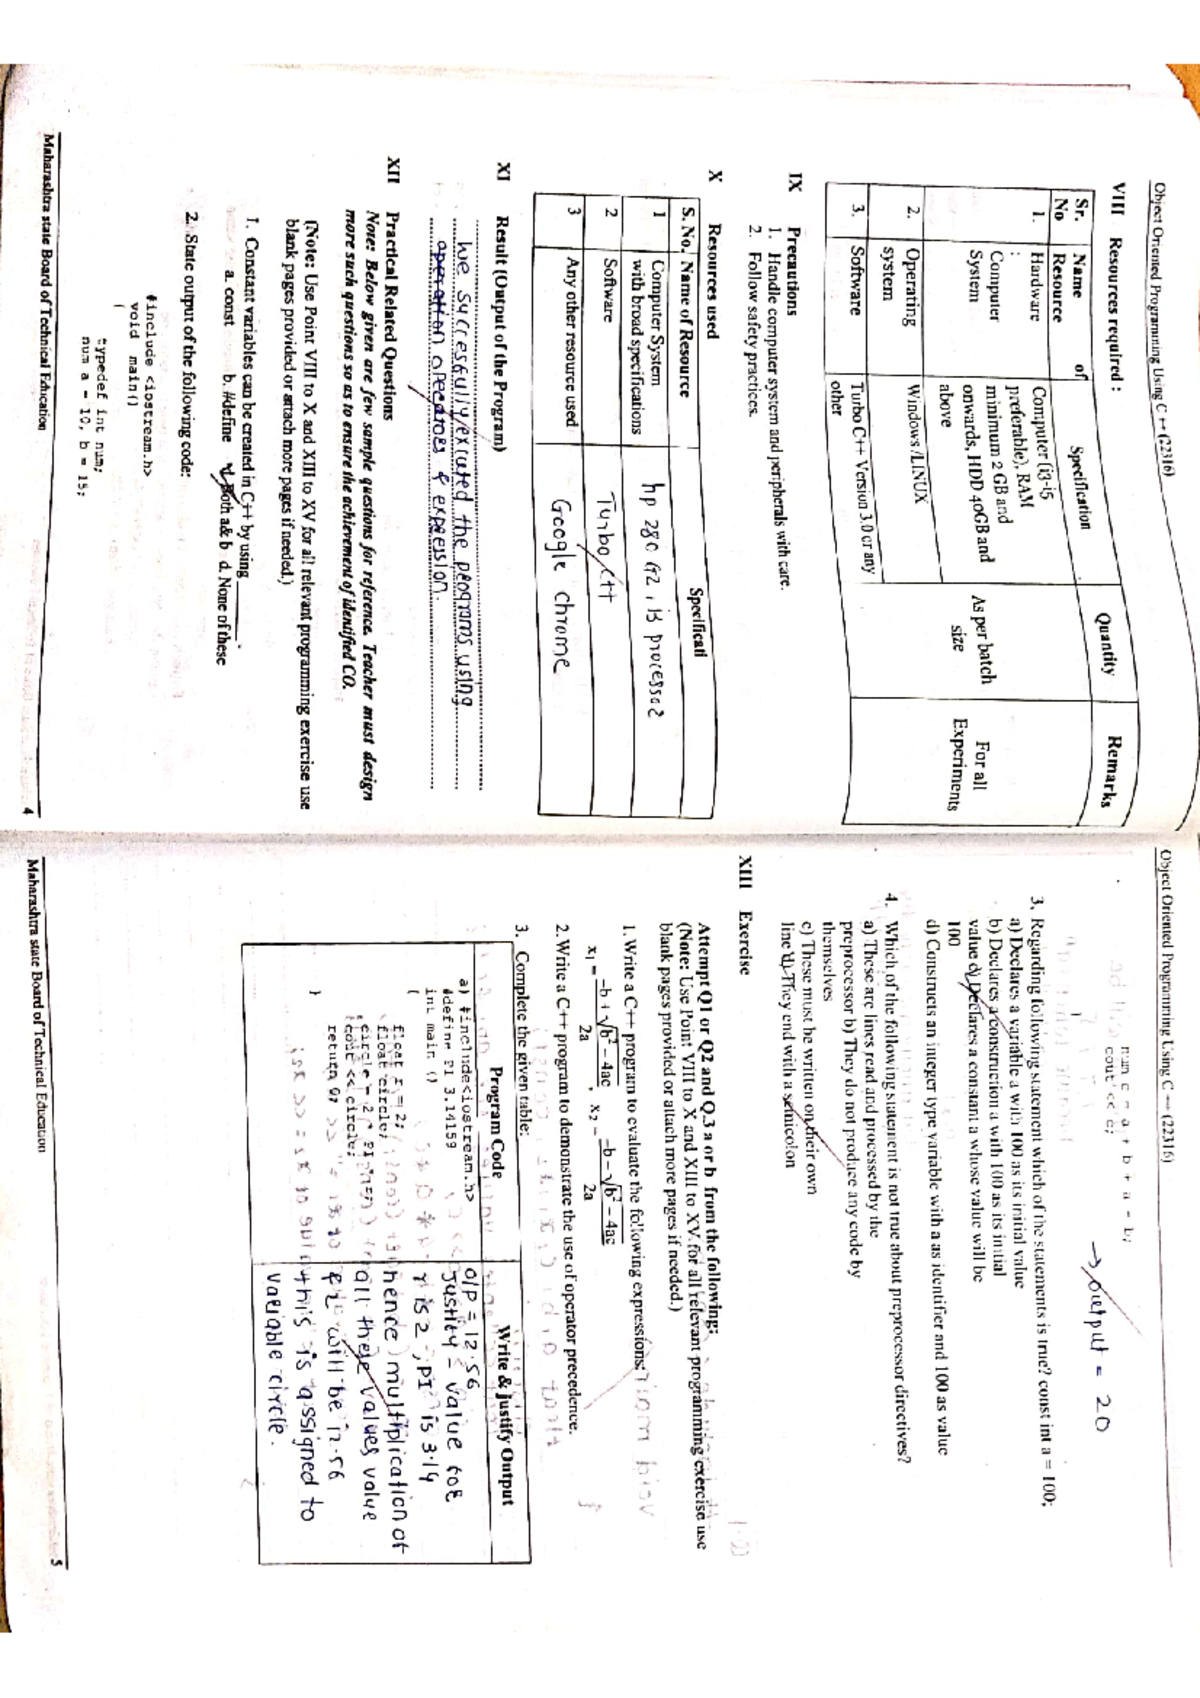 Object Oriented Programming Using C++ (22316)
VIII Resources required :
Sr. No | Name of Resource | Specification | Quantity | Remarks
1. | Hardware : Computer System | Computer (i3-i5 preferable), RAM minimum 2 GB and onwards, HDD 40GB and above | As per batch size | For all Experiments
2. | Operating system | Windows /LINUX
3. | Software | Turbo C++ Version 3.0 or any other
IX Precautions
1. Handle computer system and peripherals with care.
2. Follow safety practices.
X Resources used
S. No. | Name of Resource | Specificati
1 | Computer System with broad specifications | hp 280 G2, i3 processor
2 | Software | Turbo C++
3 | Any other resource used | Google chrome
XI Result (Output of the Program)
we successfully excuted the programs using
operation operators & expression.
XII Practical Related Questions
Note: Below given are few sample questions for reference. Teacher must design
more such questions so as to ensure the achievement of identified CO.
(Note: Use Point VIII to X and XIII to XV for all relevant programming exercise use
blank pages provided or attach more pages if needed.)
1. Constant variables can be created in C++ by using
a. const b. #define Both a& b d. None of these
2. State output of the following code:
#include <iostream.h>
void main()
{
typedef int num;
num a = 10, b = 15;
Maharashtra state Board of Technical Education 4
Object Oriented Programming Using C++ (22316)
num c = a + b + a - b;
cout << c;
}
→ output = 20
3. Regarding following statement which of the statements is true? const int a = 100;
a) Declares a variable a with 100 as its initial value
b) Declares a construction a with 100 as its initial
value c) Declares a constant a whose value will be
100
d) Constructs an integer type variable with a as identifier and 100 as value
4. Which of the following statement is not true about preprocessor directives?
a) These are lines read and processed by the
preprocessor b) They do not produce any code by
themselves
c) These must be written on their own
line d) They end with a semicolon
XIII Exercise
Attempt Q1 or Q2 and Q.3 a or b from the following:
(Note: Use Point VIII to X and XIII to XV for all relevant programming exercise use
blank pages provided or attach more pages if needed.)
1. Write a C++ program to evaluate the following expressions:
x₁ = (-b + √(b² - 4ac)) / 2a , x₂ = (-b - √(b² - 4ac)) / 2a
2. Write a C++ program to demonstrate the use of operator precedence.
3. Complete the given table:
Program Code | Write & justify Output
a) #include<iostream.h>
#define PI 3.14159
int main ()
{
float r = 2;
float circle;
circle = 2 * PI
cout << circle;
return 0;
}
O/P = 12.56
Justify - value for
r is 2, PI is 3.14
hence multiplication of
all these values value
r2 will be 12.56
this is assigned to
variable circle.
Maharashtra state Board of Technical Education 5